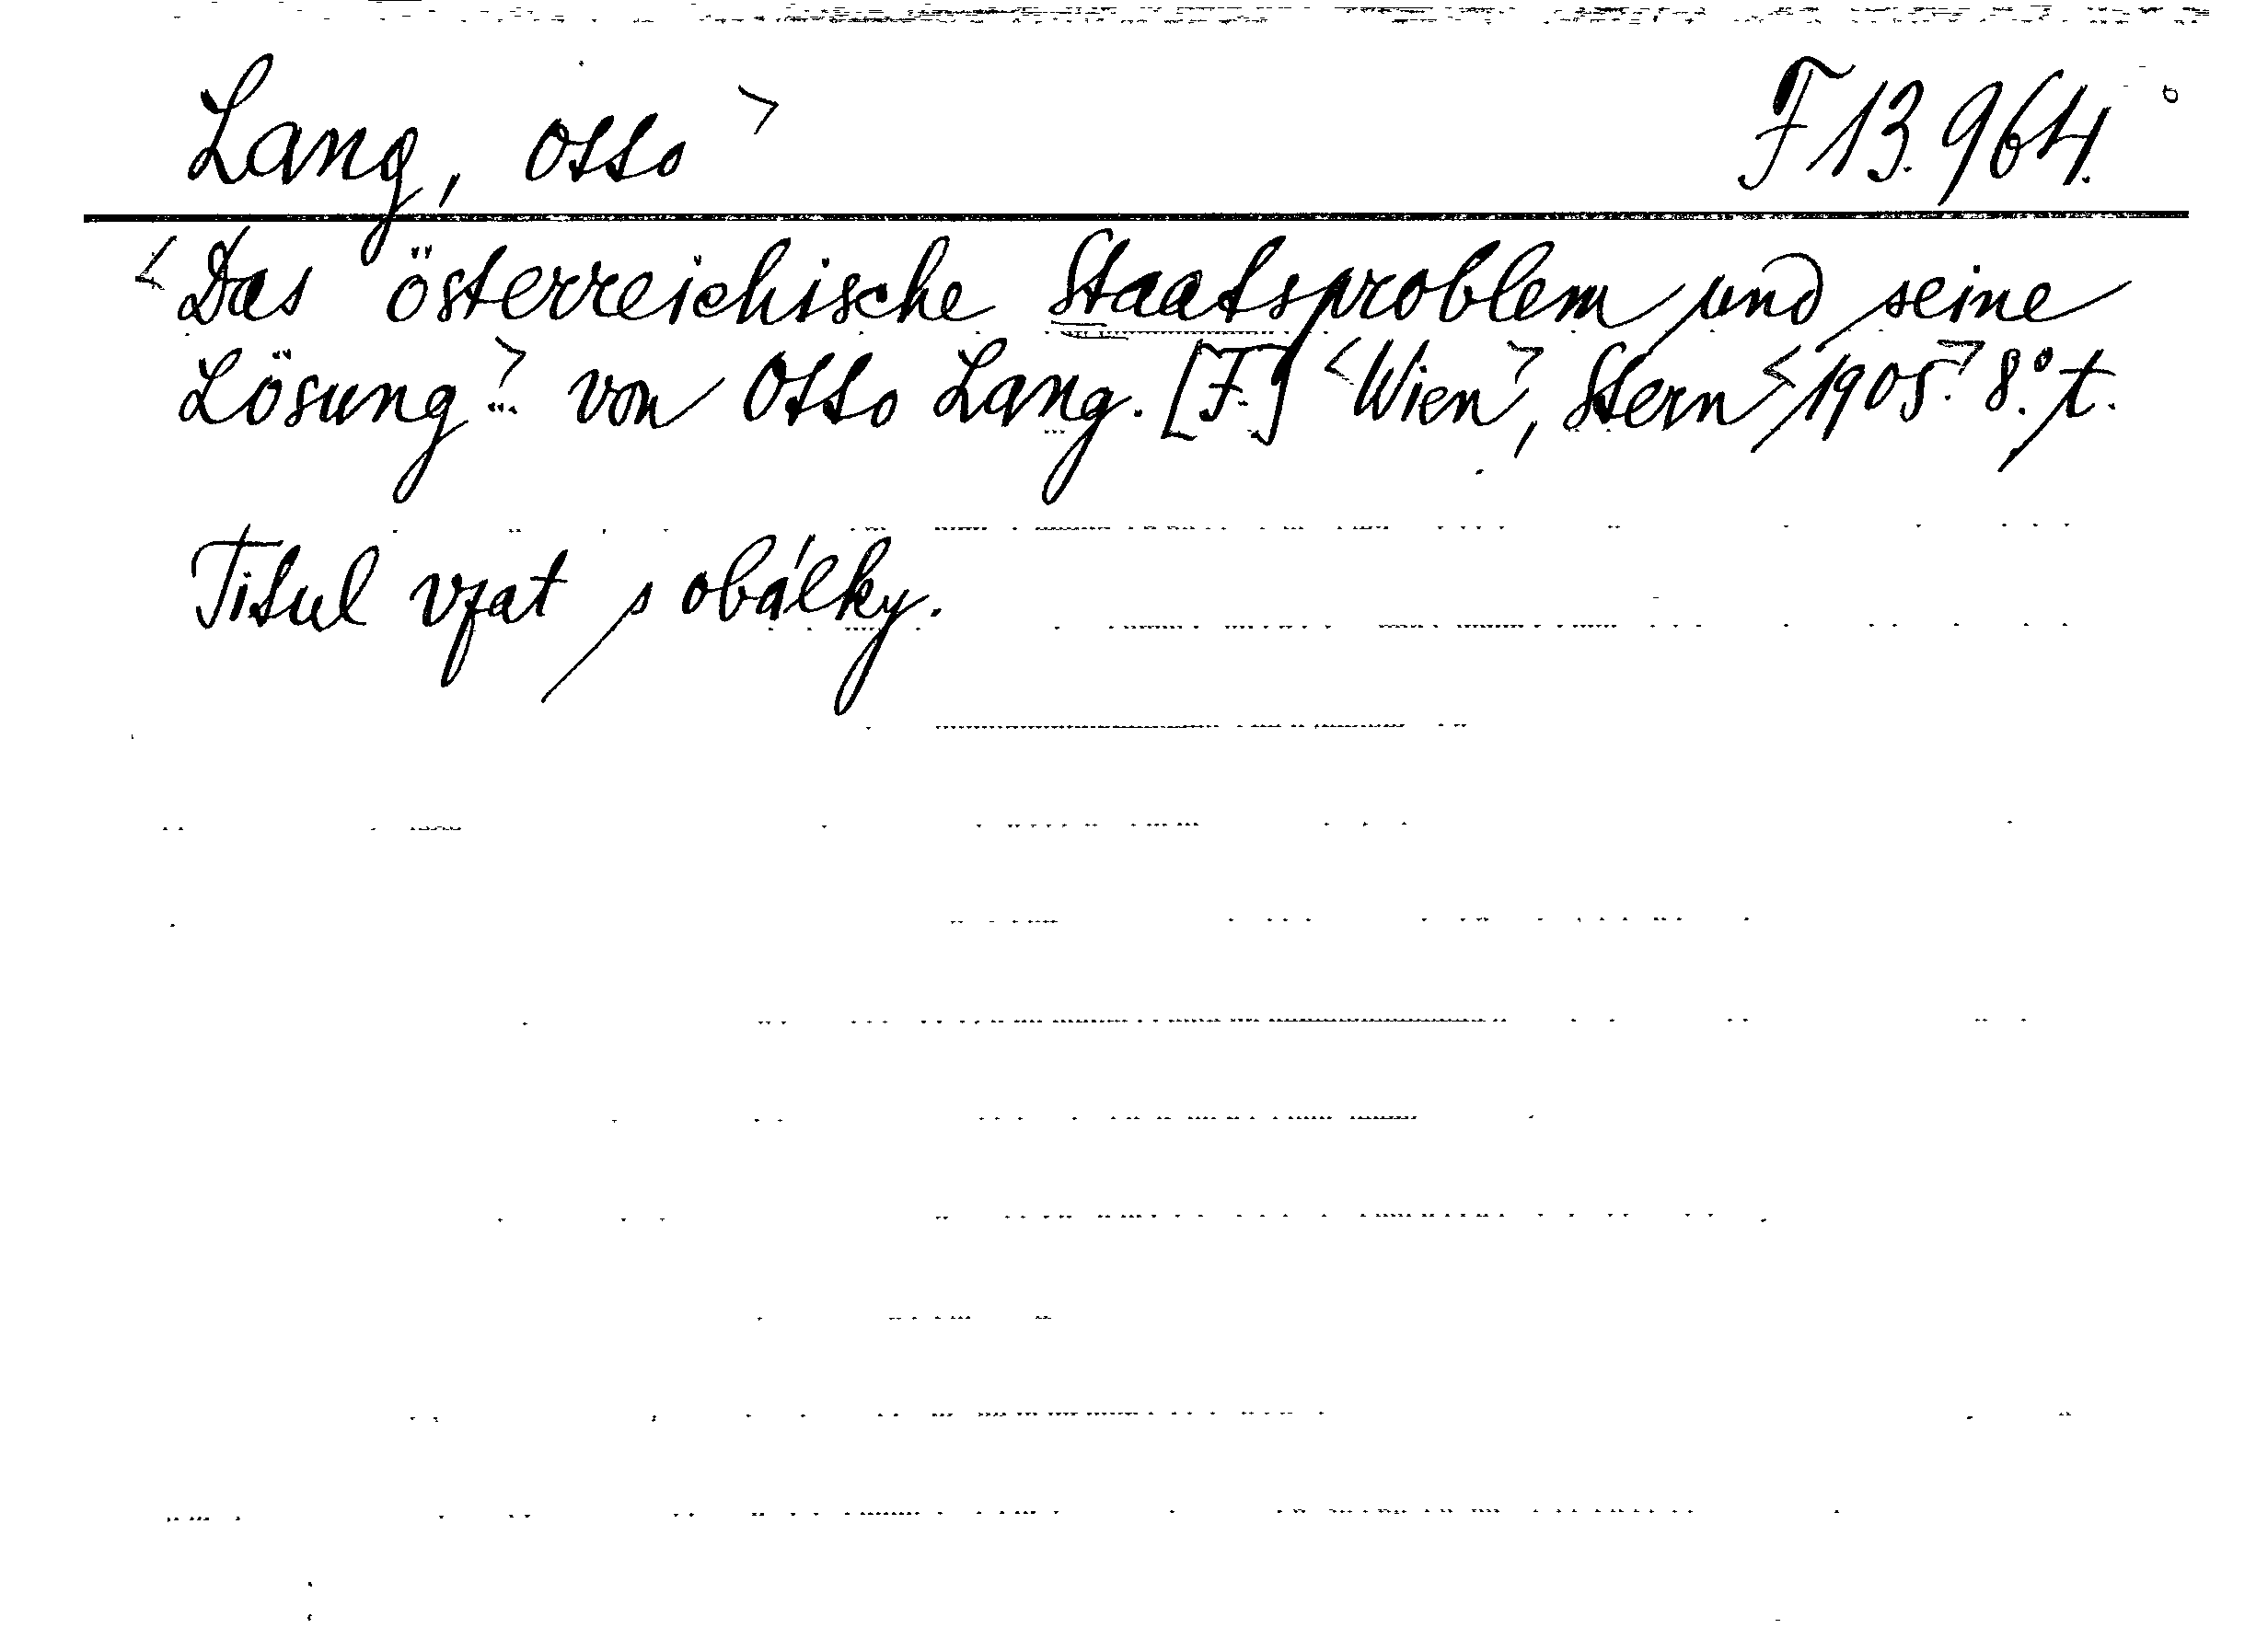 Lang, Otto > F 13.964.
<Das österreichische Staatsproblem und seine
Lösung.> von Otto Lang. [F.] <Wien>, Stern <1905.> 8°. t.
Titul vzat s obálky.